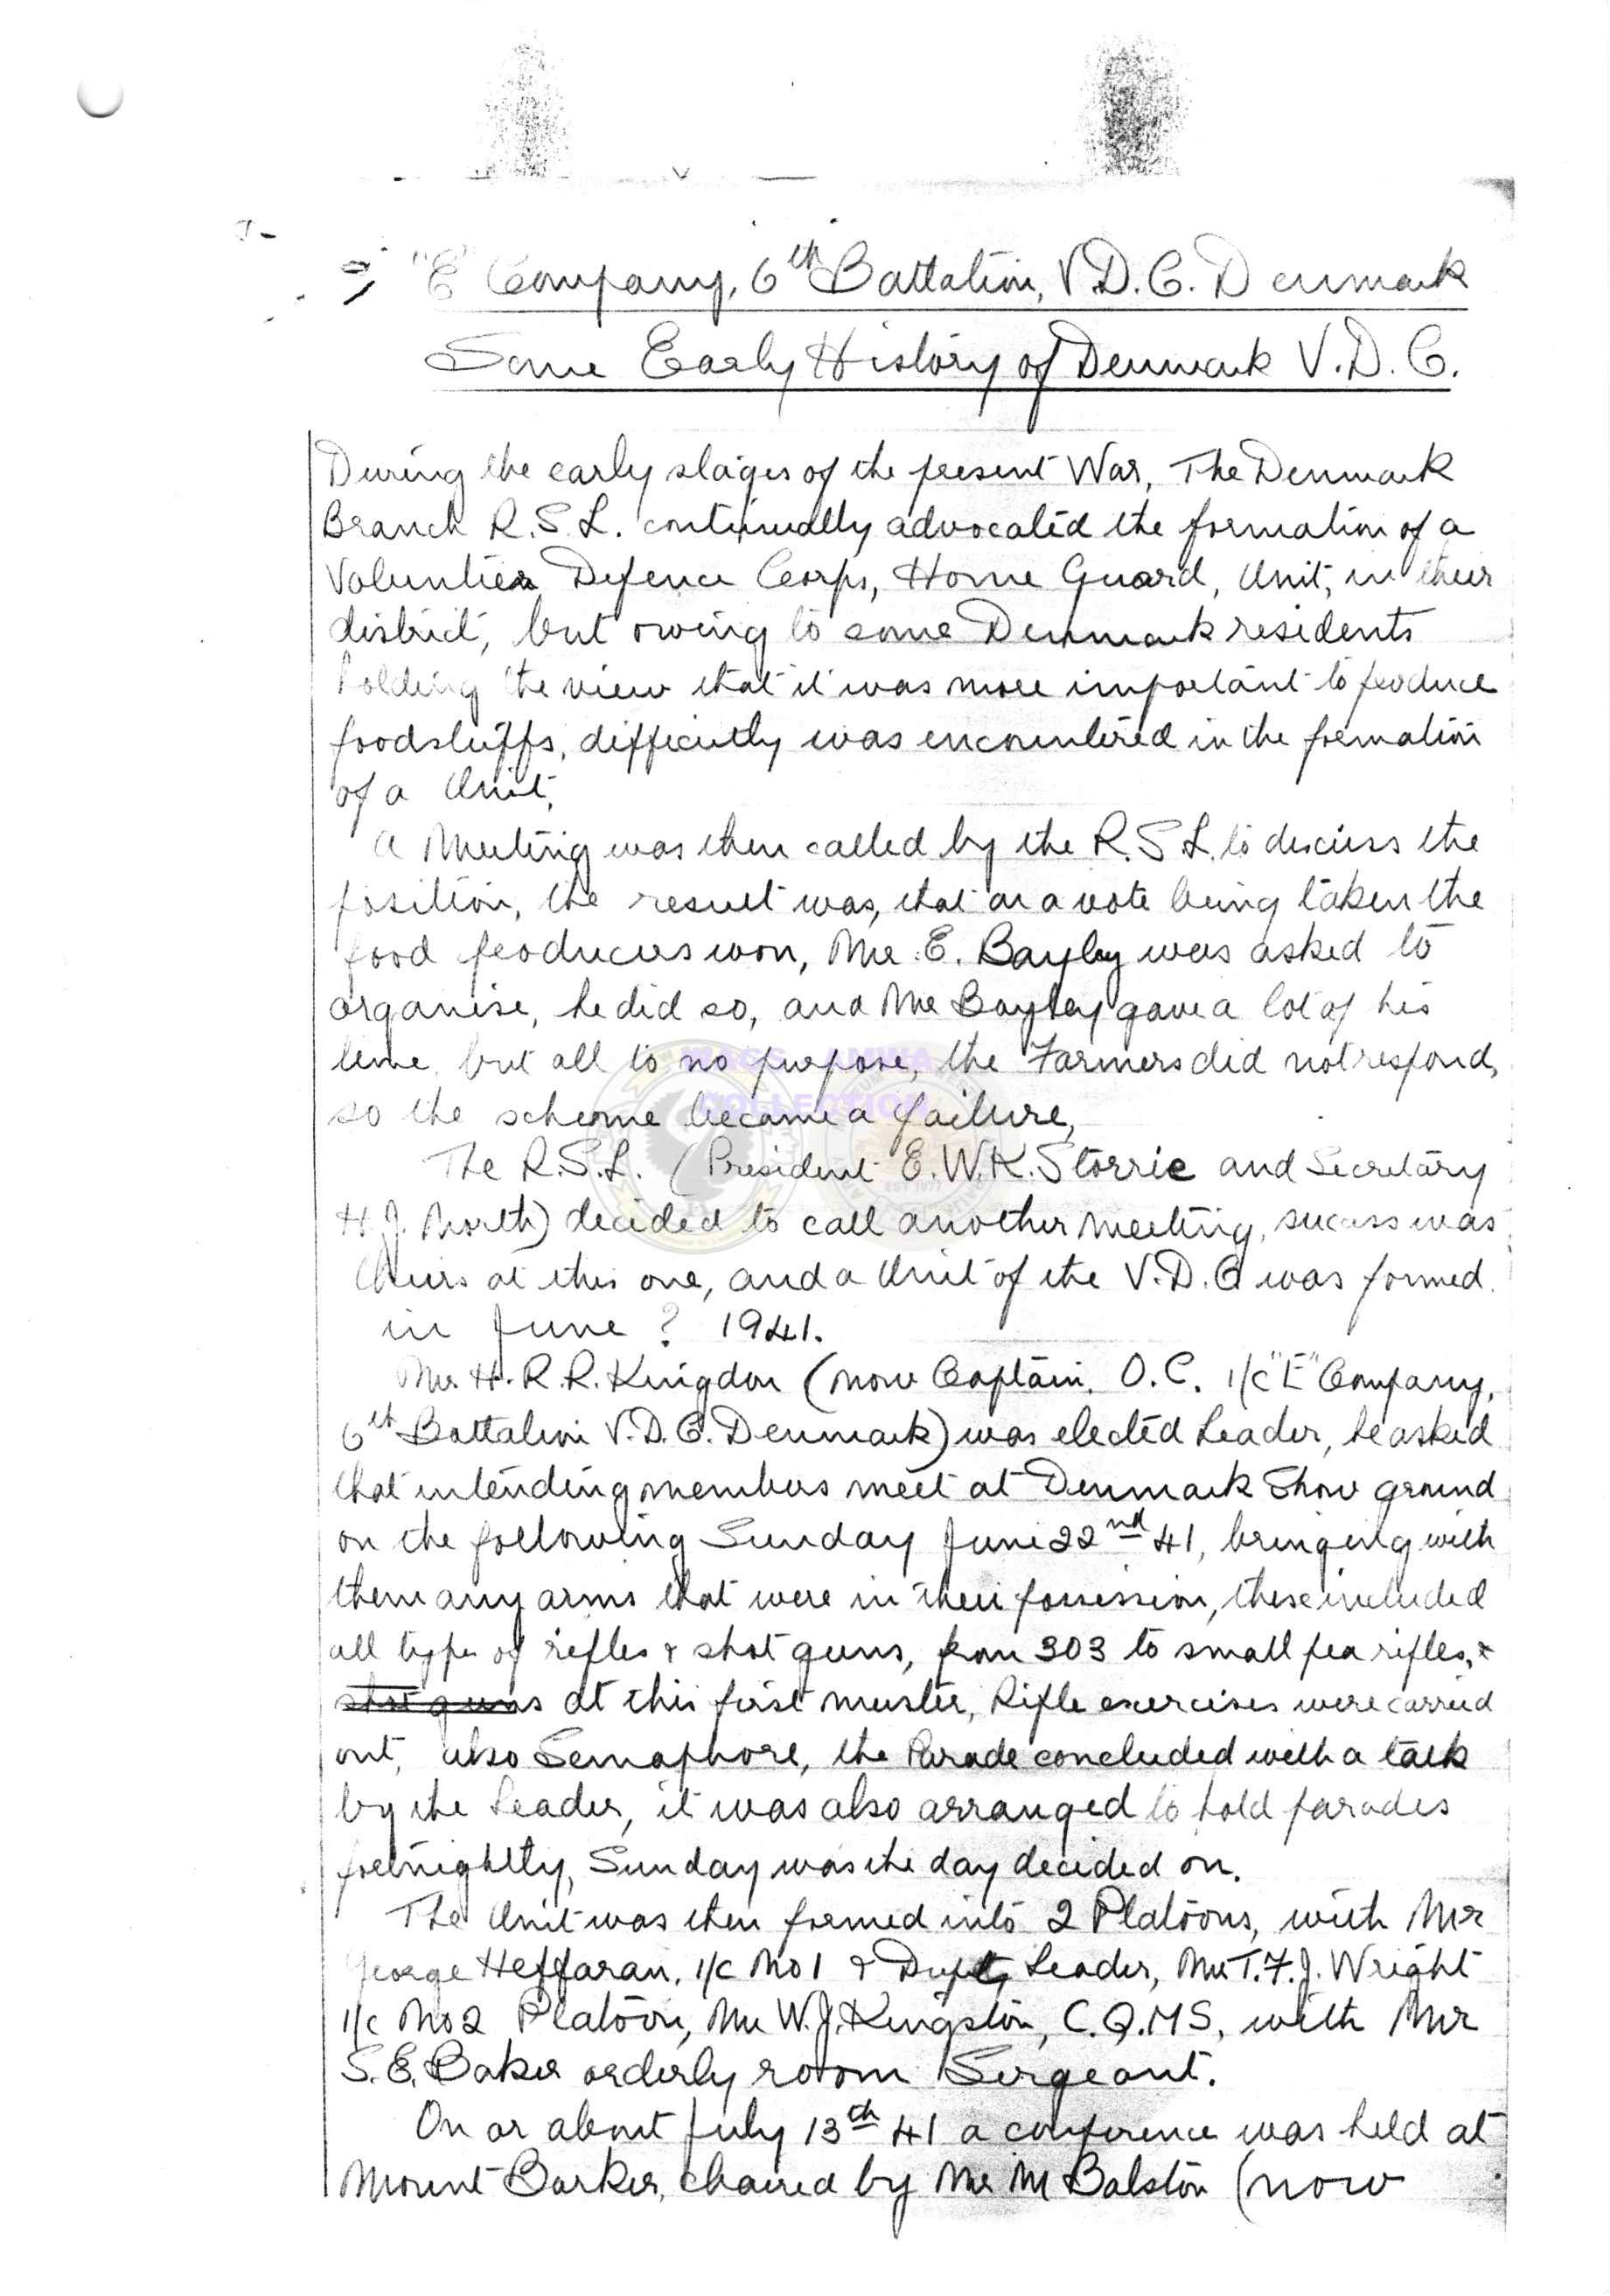 "E" Company, 6th Battalion, V.D.C. Denmark
Some Early History of Denmark V.D.C.
During the early stages of the present War, The Denmark
Branch R.S.L. continually advocated the formation of a
Volunteer Defence Corps, Home Guard, Unit, in their
district, but owing to some Denmark residents
holding the view that it was more important to produce
foodstuffs, difficulty was encountered in the formation
of a Unit.
A Meeting was then called by the R.S.L. to discuss the
position, the result was, that on a vote being taken the
food producers won, Mr. E. Bayley was asked to
organise, he did so, and Mr Bayley gave a lot of his
time, but all to no purpose, the Farmers did not respond,
so the scheme became a failure,
The R.S.L. (President E.W.K. Storrie and Secretary
H.J. North) decided to call another meeting, success was
theirs at this one, and a Unit of the V.D.C was formed
in June ? 1941.
Mr. H.R.R. Kingdon (now Captain, O.C. I/C "E" Company,
6th Battalion V.D.C. Denmark) was elected Leader, he asked
that intending members meet at Denmark Show ground
on the following Sunday June 22nd 41, bringing with
them any arms that were in their possession, these included
all type of rifles & shot guns, from 303 to small pea rifles, &
shot guns at this first muster, Rifle exercises were carried
out, also Semaphore, the Parade concluded with a talk
by the Leader, it was also arranged to hold parades
fortnightly, Sunday was the day decided on.
The Unit was then formed into 2 Platoons, with Mr
George Heffaran, I/C No 1 & Dupty Leader, Mr T.F.J. Wright
I/C No 2 Platoon, Mr W.J. Kingston, C.Q.M.S, with Mr
S.E. Baker orderly room Sergeant.
On or about July 13th 41 a conference was held at
Mount Barker, chaired by Mr M Balston (now
MAGS - AMWA
COLLECTION